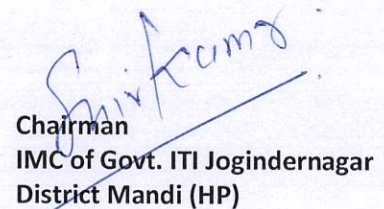 Chairman
IMC of Govt. ITI Jogindernagar
District Mandi (HP)